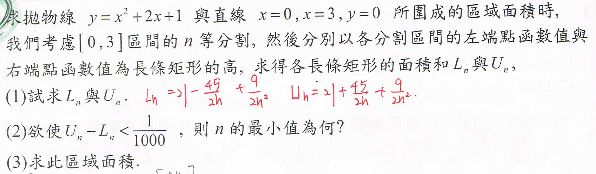 求拋物線 y=x²+2x+1 與直線 x=0,x=3,y=0 所圍成的區域面積時,
我們考慮[0,3]區間的 n 等分割, 然後分別以各分割區間的左端點函數值與
右端點函數值為長條矩形的高, 求得各長條矩形的面積和 Lₙ 與 Uₙ,
(1)試求 Lₙ 與 Uₙ. Lₙ=21-45/2n+9/2n² Uₙ=21+45/2n+9/2n².
(2)欲使 Uₙ-Lₙ<1/1000 , 則 n 的最小值為何?
(3)求此區域面積.